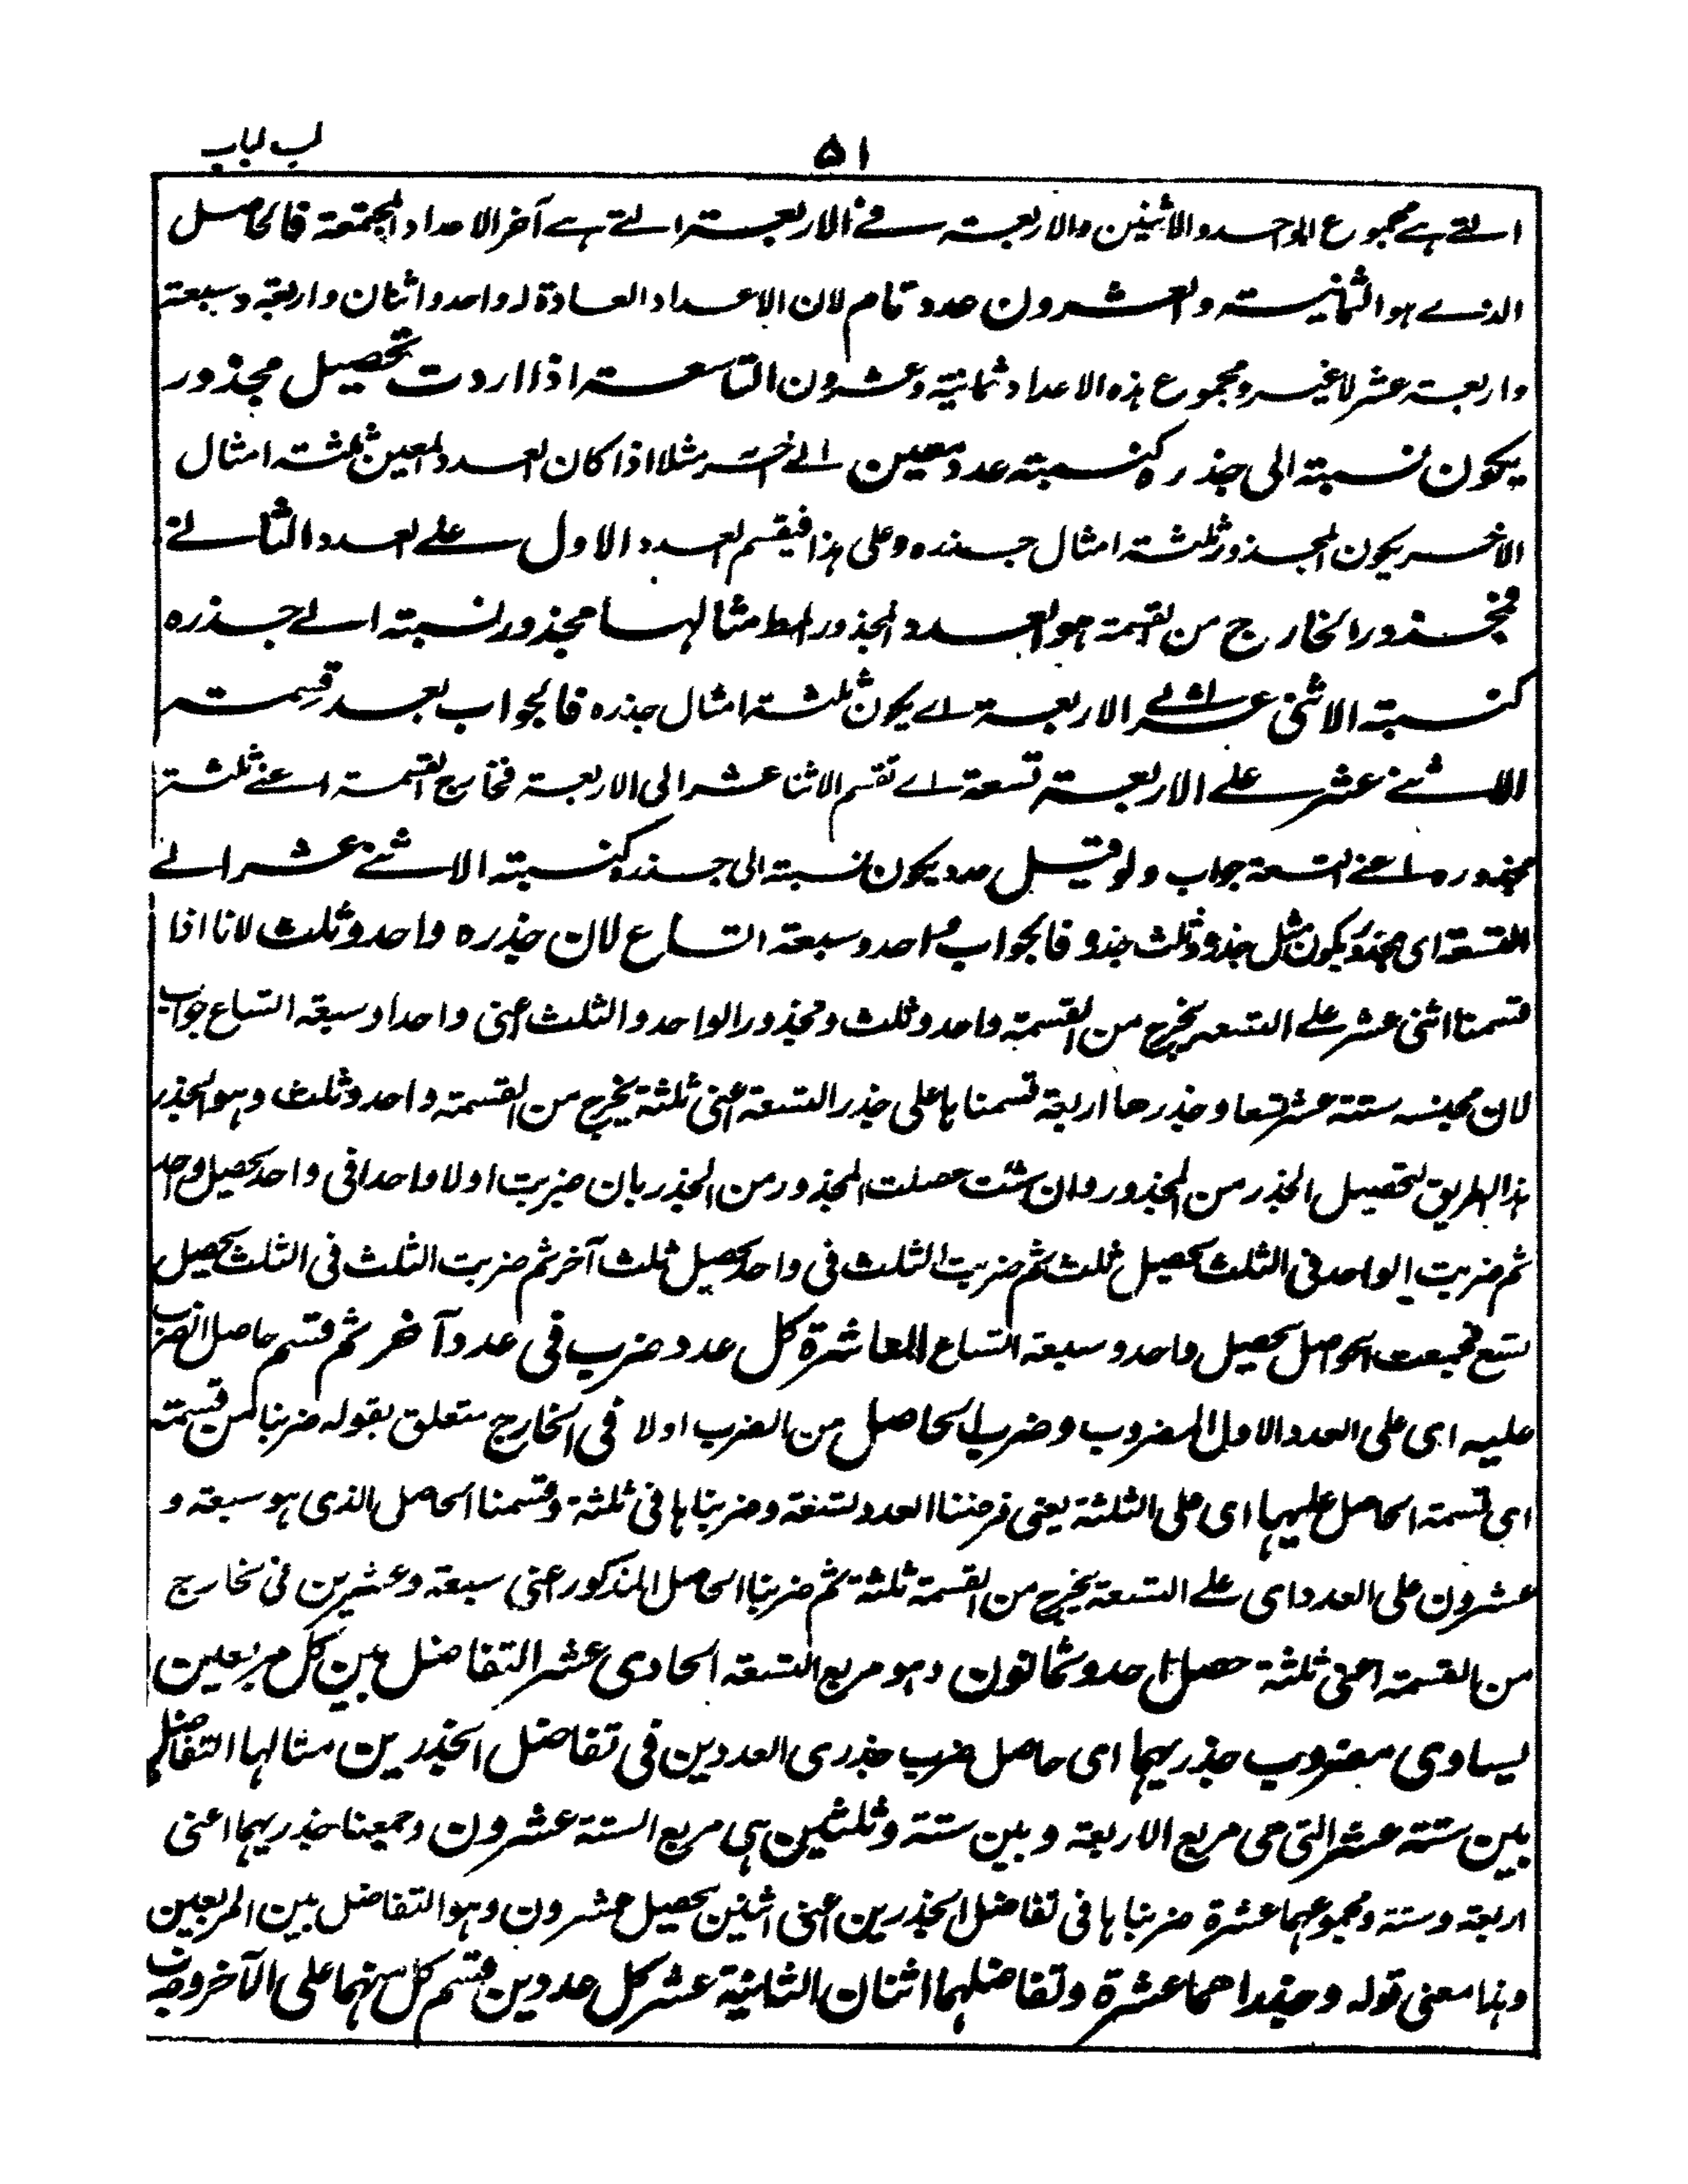 لب لباب
۵۱
التے ہے مجموع الواحد والاثنین والاربعتہ فے الاربعتہ التے ہے آخر الاعداد المجتمعۃ فالحاصل
الذے ہو الثمانیتہ والعشرون عدد تام لان الاعداد العادۃ لہ واحد واثنان واربعۃ وسبعتہ
واربعتہ عشر لا غیر ومجموع ہذہ الاعداد ثمانیۃ وعشرون التاسعتہ اذا اردت تحصیل مجذور
یکون نسبتہ الی جذرہ کنسبتہ عدد معین الے آخر مثلا اذا کان العدد المعین ثلثتہ امثال
الآخر یکون المجذور ثلثتہ امثال جذرہ وعلی ہذا فیقسم العدد الاول علے العدد الثانے
فمجذور الخارج من القسمۃ ہو العدد المجذور المط مثالہا مجذور نسبتہ الے جذرہ
کنسبتہ الاثنی عشر الے الاربعتہ اے یکون ثلثتہ امثال جذرہ فالجواب بعد قسمتہ
الاثنے عشر علے الاربعتہ تسعۃ اے تقسم الاثنا عشر الی الاربعتہ فخارج القسمتہ اعنے ثلثتہ
مجذورہ اعنے التسعۃ جواب ولو قیل عدد یکون نسبتہ الی جذرہ کنسبتہ الاثنے عشر الے
التسعۃ ای مجذور یکون مثل جذرہ وثلث جذرہ فالجواب واحد وسبعتہ اتساع لان جذرہ واحد وثلث لانا اذا
قسمنا اثنی عشر علے التسعہ یخرج من القسمتہ واحد وثلث ومجذور الواحد والثلث اعنی واحدا وسبعۃ اتساع جواب
لان مجنسہ ستتہ عشر تسعا وجذرھا اربعۃ قسمناہا علی جذر التسعۃ اعنی ثلثۃ یخرج من القسمتہ واحد وثلث وہو الجذر
ہذا الطریق لتحصیل الجذر من المجذور وان شئت حصلت المجذور من الجذر بان ضربت اولا واحدا فی واحد یحصل واحد
ثم ضربت الواحد فی الثلث یحصل ثلث ثم ضربت الثلث فی واحد یحصل ثلث آخر ثم ضربت الثلث فی الثلث یحصل
تسع فجمعت الحواصل یحصل واحد وسبعۃ اتساع العاشرۃ کل عدد ضرب فی عدد آخر ثم قسم حاصل الضرب
علیہ ای علی العدد الاول المضروب وضرب الحاصل من الضرب اولا فی الخارج متعلق بقولہ ضربنا من قسمتہ
ای قسمتہ الحاصل علیہا ای علی الثلثۃ یعنی فرضنا العدد تسعۃ وضربناہا فی ثلثۃ وقسمنا الحاصل الذی ہو سبعۃ و
عشرون علی العدد ای علے التسعۃ یخرج من القسمتہ ثلثۃ ثم ضربنا الحاصل المذکور اعنی سبعۃ وعشرین فی خارج
من القسمتہ اعنی ثلثۃ حصل احد وثمانون وہو مربع التسعۃ الحادی عشر التفاضل بین کل مربعین
یساوی مضروب جذریہما ای حاصل ضرب جذری العددین فی تفاضل الجذرین مثالہا التفاضل
بین ستتہ عشر التی ھی مربع الاربعۃ وبین ستۃ وثلثین ہی مربع الستۃ عشرون وجمعنا جذریہما اعنی
اربعۃ وستۃ ومجموعہما عشرۃ ضربناہا فی تفاضل الجذرین اعنی اثنین یحصل عشرون وہو التفاضل بین المربعین
وہذا معنی قولہ وجذراھما عشرۃ وتفاضلہما اثنان الثانیۃ عشر کل عددین قسم کل منہما علی الآخر وضرب